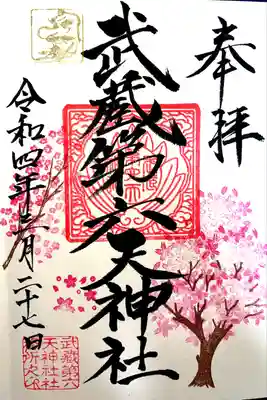 奉拝
武蔵第六天神社
令和四年三月二十七日
武蔵第六
天神社社